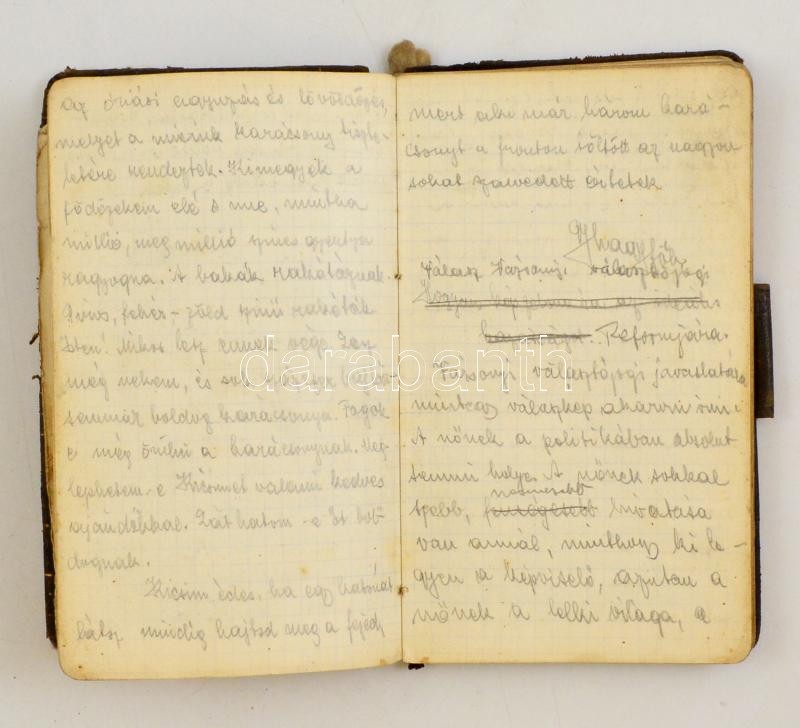 az óriási agyuzás és lövöldözés,
melyet a mieink karácsony tiszte-
letére rendeztek. Kimegyek a
födözékem elé s me, mintha
millió, meg millió színes gyertya
ragyogna. A bakák rakétáznak.
Piros, fehér-zöld színű rakéták
Isten! Mikor lesz ennek vége. Lesz
még nekem, és sok
boldog karácsonya. Fogok
e még örülni a karácsonynak. Meg-
lephetem-e Kicsimet valami kedves
ajándékkal. Láthatom-e Őt bol-
dognak.
Kicsim, édes, ha egy katonát
látsz mindig hajtsd meg a fejed,
mert aki már három kará-
csonyt a fronton töltött az nagyon
sokat szenvedett értetek
Válasz Vázsonyi választójogi
Reformjára.
Vázsonyi választójogi javaslatára
mintegy válaszkép akarom írni.
A nőnek a politikában absolut
semmi helye. A nőnek sokkal
nemesebb
szebb, hivatása
van annál, minthogy ki le-
gyen a képviselő, azután a
nőnek a lelki világa, a
darabanth